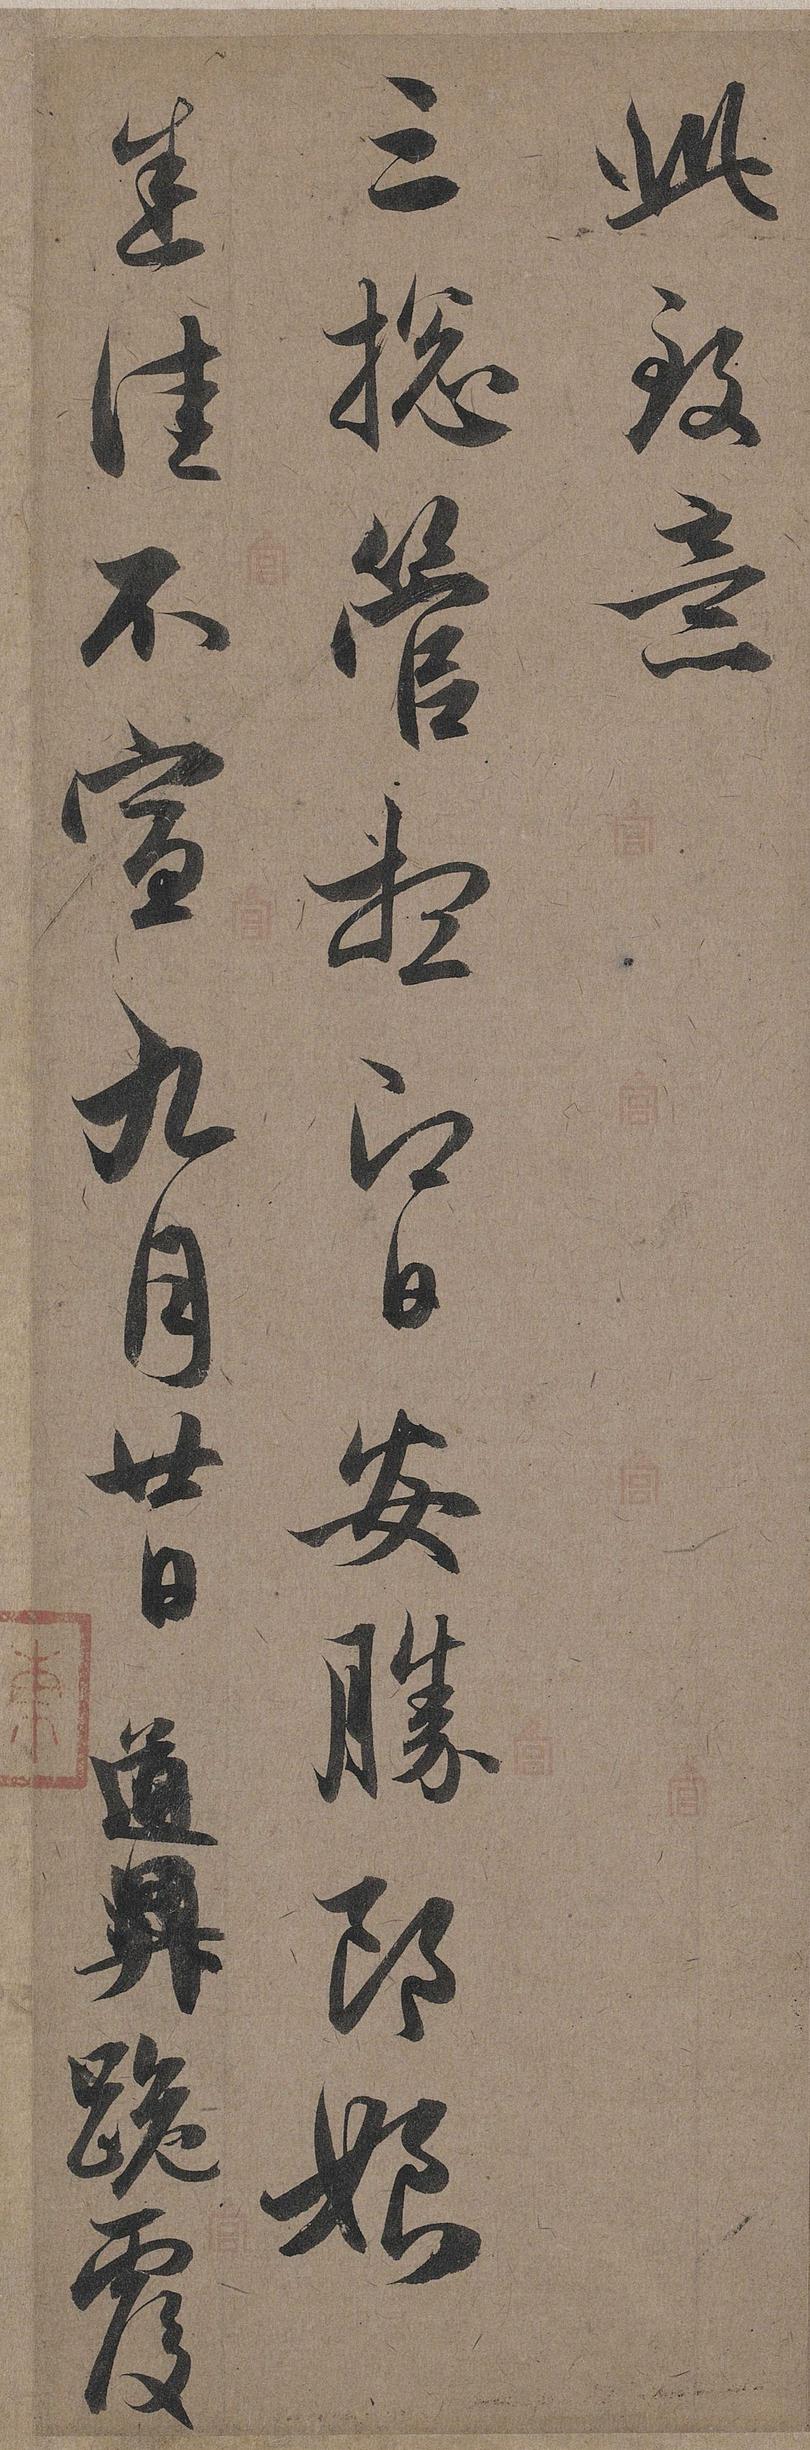 此致意
三捴管想即日安勝郎娘
悉佳不宣九月廿日道昇跪覆